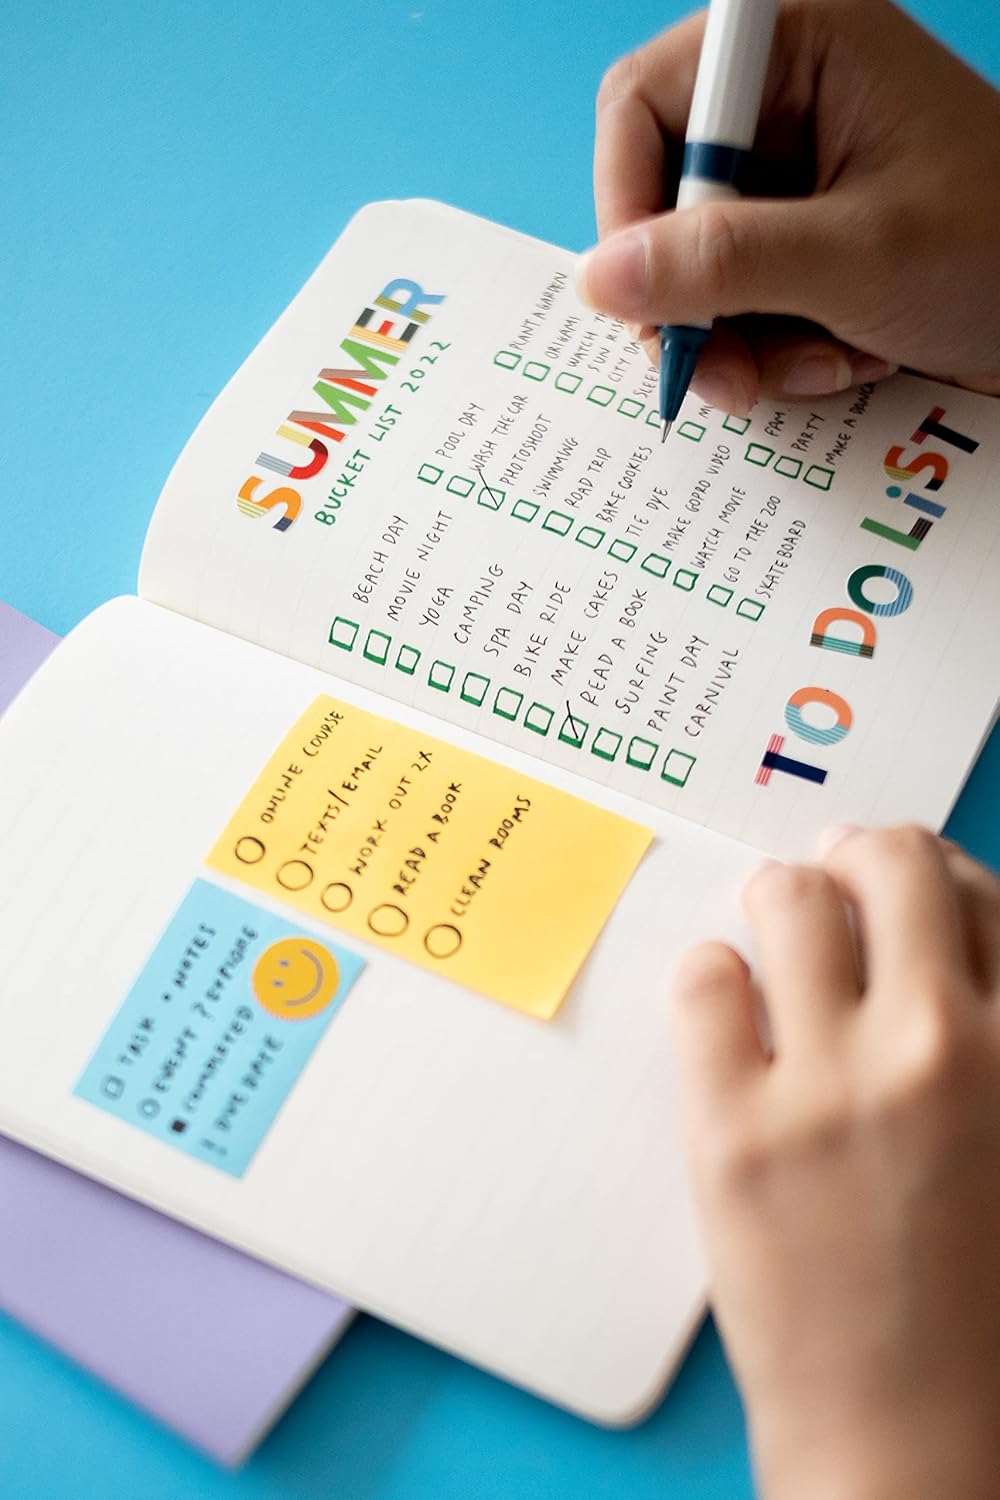 SUMMER
BUCKET LIST 2022
BEACH DAY
MOVIE NIGHT
YOGA
CAMPING
SPA DAY
BIKE RIDE
MAKE CAKES
READ A BOOK
SURFING
PAINT DAY
CARNIVAL
POOL DAY
WASH THE CAR
PHOTOSHOOT
SWIMMING
ROAD TRIP
BAKE COOKIES
TIE DYE
MAKE GOPRO VIDEO
WATCH MOVIE
GO TO THE ZOO
SKATEBOARD
PLANT A GARDEN
ORIGAMI
WATCH
SUN RISE
CITY
SLEEP
FAM.
PARTY
MAKE A DANCE
TO DO LiST
ONLINE COURSE
TEXTS/EMAIL
WORK OUT 2X
READ A BOOK
CLEAN ROOMS
TASK • NOTES
EVENT ? EXPLORE
COMPLETED
! DUE DATE